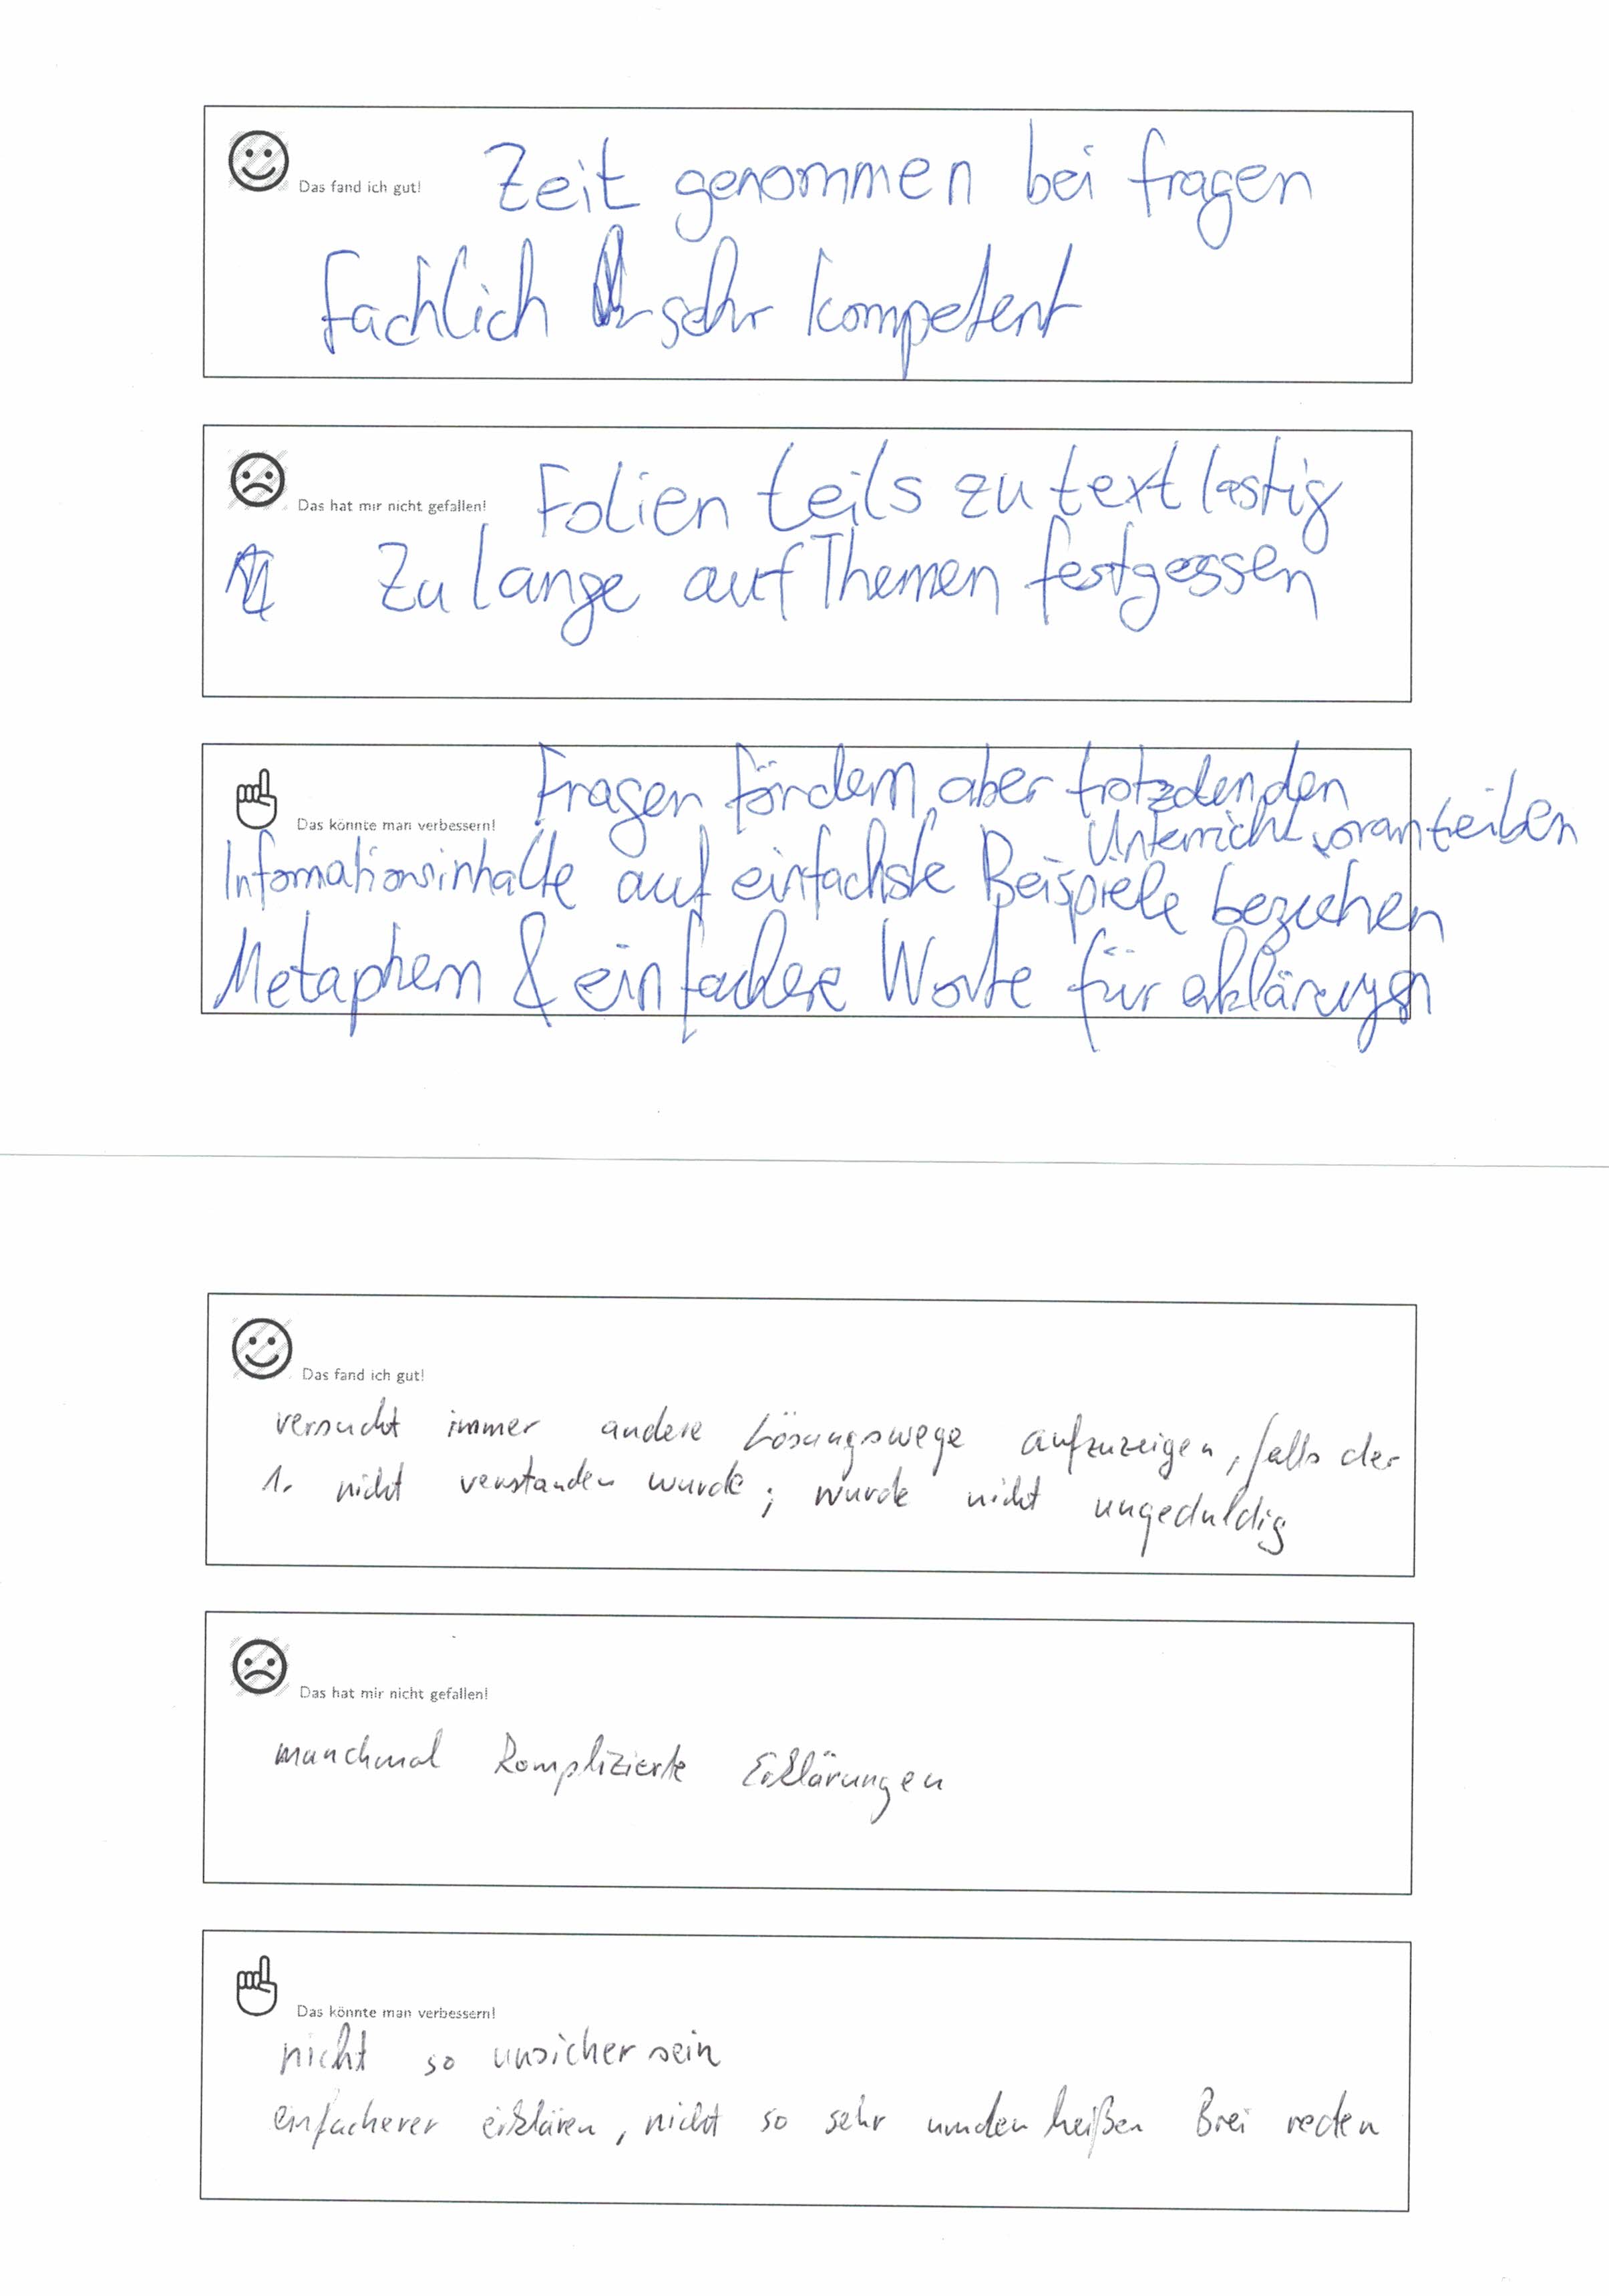 Das fand ich gut! Zeit genommen bei fragen
fachlich sehr kompetent
Das hat mir nicht gefallen! Folien teils zu textlastig
Zu lange auf Themen festgessen
Das könnte man verbessern! Fragen fördern, aber trotzden den
Unterricht voranteiben
Infomationsinhalte auf einfachste Beispiele beziehen
Metaphern & einfachere Worte für erklärungen
Das fand ich gut!
versucht immer andere Lösungswege aufzuzeigen, falls der
1. nicht verstanden wurde; wurde nicht ungeduldig
Das hat mir nicht gefallen!
manchmal komplizierte Erklärungen
Das könnte man verbessern!
nicht so unsicher sein
einfacherer erklären, nicht so sehr um den heißen Brei reden